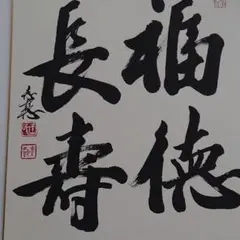 福德
長壽